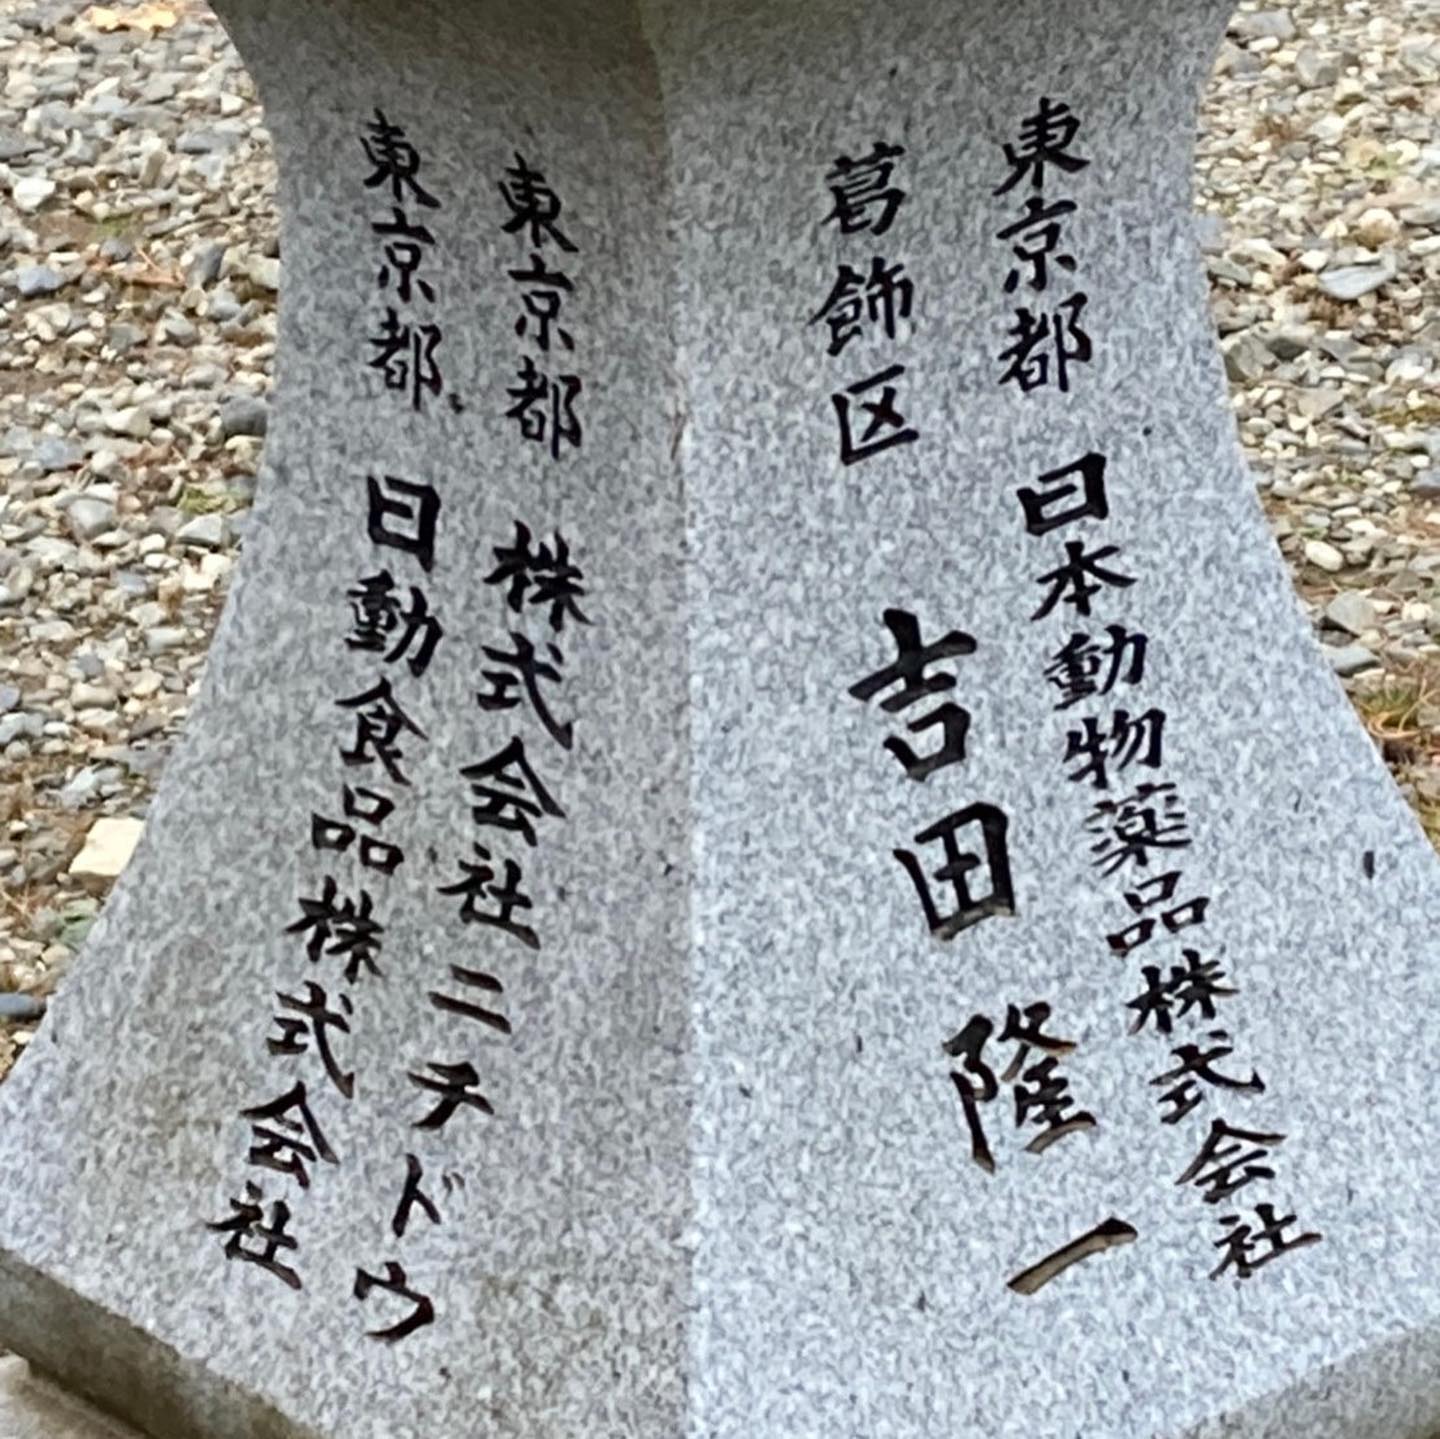 東京都 日本動物薬品株式会社
葛飾区 吉田隆一
東京都 株式会社ニチドウ
東京都 日動食品株式会社